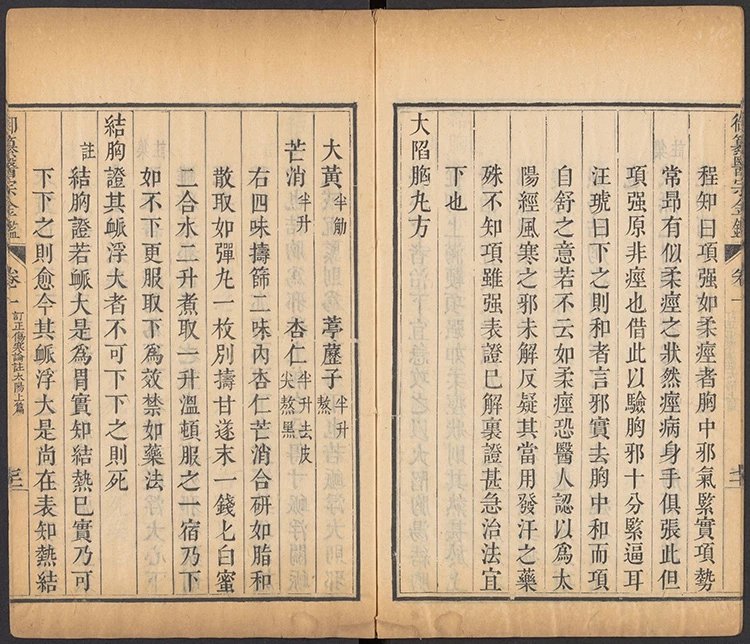 程知曰項强如柔痙者胸中邪氣緊實項勢
常昻有似柔痙之狀然痙病身手俱張此但
項强原非痙也借此以驗胸邪十分緊逼耳
汪琥曰下之則和者言邪實去胸中和而項
自舒之意若不云如柔痙恐醫人認以爲太
陽經風寒之邪未解反疑其當用發汗之藥
殊不知項雖强表證已解裏證甚急治法宜
下也
大陷胸丸方
大黃半觔 葶藶子半升熬
芒消半升 杏仁半升去皮尖熬黑
右四味擣篩二味內杏仁芒消合研如脂和
散取如彈丸一枚別擣甘遂末一錢匕白蜜
二合水二升煮取一升溫頓服之一宿乃下
如不下更服取下爲效禁如藥法
結胸證其脈浮大者不可下下之則死
註 結胸證若脈大是爲胃實知結熱已實乃可
下下之則愈今其脈浮大是尚在表知熱結
御纂醫宗金鑑 卷一 訂正傷寒論註太陽上篇